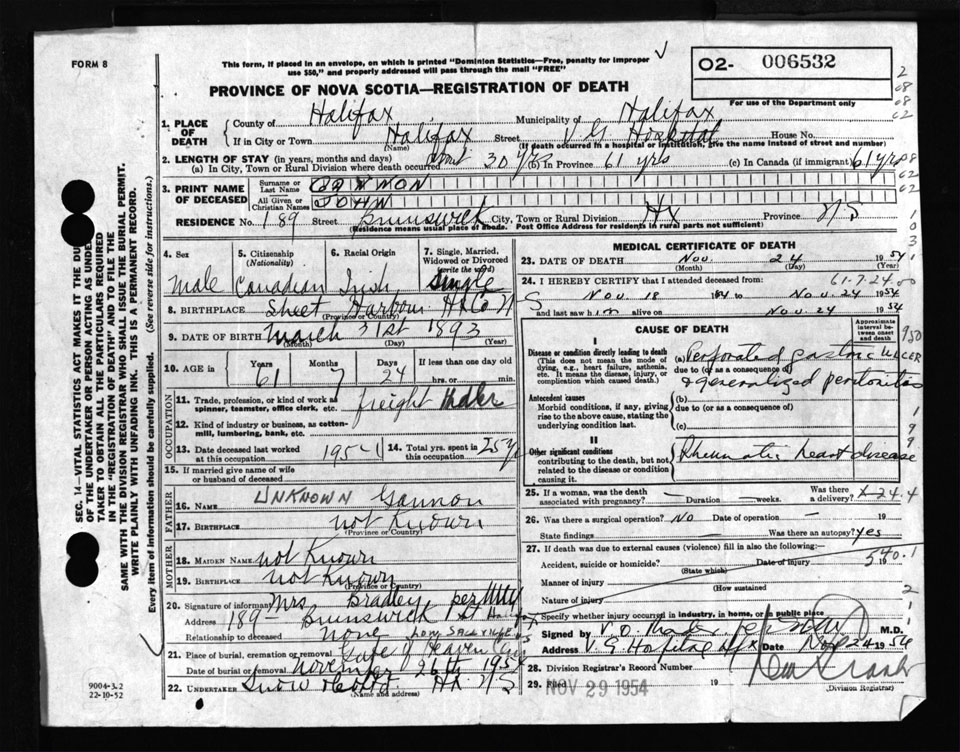 FORM 8
This form, if placed in an envelope, on which is printed "Dominion Statistics—Free, penalty for improper
use $50," and properly addressed will pass through the mail "FREE"
O2- 006532
For use of the Department only
PROVINCE OF NOVA SCOTIA—REGISTRATION OF DEATH
1. PLACE OF DEATH { County of Halifax Municipality of Halifax
If in City or Town Halifax Street V.G. Hospital House No.
(Name) (If death occurred in a hospital or institution, give the name instead of street and number)
2. LENGTH OF STAY (in years, months and days)
(a) In City, Town or Rural Division where death occurred about 30 yrs (b) In Province 61 yrs (c) In Canada (if immigrant) 61 yrs
3. PRINT NAME OF DECEASED { Surname or Last Name GANNON
All Given or Christian Names JOHN
RESIDENCE No. 189 Street Brunswick City, Town or Rural Division Hx Province N S
(Residence means usual place of abode. Post Office Address for residents in rural parts not sufficient)
4. Sex Male
5. Citizenship (Nationality) Canadian
6. Racial Origin Irish
7. Single, Married, Widowed or Divorced (write the word) Single
8. BIRTHPLACE Sheet Harbour Hx Co N S
(Province or Country)
9. DATE OF BIRTH March 31st 1893
(Month) (Day) (Year)
10. AGE in { Years 61 Months 7 Days 24 If less than one day old
hrs. or min.
OCCUPATION
11. Trade, profession, or kind of work as spinner, teamster, office clerk, etc. freight
12. Kind of industry or business, as cotton-mill, lumbering, bank, etc.
13. Date deceased last worked at this occupation 1951
14. Total yrs. spent in this occupation 25 y
15. If married give name of wife or husband of deceased
FATHER
16. Name UNKNOWN Gannon
17. Birthplace not Known
(Province or Country)
MOTHER
18. Maiden Name not Known
19. Birthplace not Known
(Province or Country)
20. Signature of informant Mrs Bradley per
Address 189 Brunswick St
Relationship to deceased none
21. Place of burial, cremation or removal Gate of Heaven
Date of burial or removal November 26th 1954
22. UNDERTAKER Snow & Co Ltd. Hx. N S
(Name and address)
MEDICAL CERTIFICATE OF DEATH
23. DATE OF DEATH Nov. 24 1954
(Month) (Day) (Year)
24. I HEREBY CERTIFY that I attended deceased from:
61-7-24-00
Nov. 18 1954 to Nov. 24 1954
and last saw him alive on Nov. 24 1954
CAUSE OF DEATH
Approximate interval between onset and death
I
Disease or condition directly leading to death
(This does not mean the mode of dying, e.g., heart failure, asthenia, etc. It means the disease, injury, or complication which caused death.)
(a) Perforated gastric ulcer
due to (or as a consequence of)
& generalized peritonitis
Antecedent causes
Morbid conditions, if any, giving rise to the above cause, stating the underlying condition last.
(b)
due to (or as a consequence of)
(c)
II
Other significant conditions
contributing to the death, but not related to the disease or condition causing it.
Rheumatic heart disease
25. If a woman, was the death associated with pregnancy? Duration weeks. Was there a delivery? X-24.4
26. Was there a surgical operation? No Date of operation — 19
State findings — Was there an autopsy? yes
27. If death was due to external causes (violence) fill in also the following:—
Accident, suicide or homicide? Date of injury 19
540.1
(State which)
Manner of injury
(How sustained
Nature of injury
Specify whether injury occurred in industry, in home, or in public place
Signed by M.D.
Address V G Hospital Hfx Date Nov 24 1954
28. Division Registrar's Record Number
29. Filed NOV 29 1954 19
(Division Registrar)
SEC. 14—VITAL STATISTICS ACT MAKES IT THE DU
OF THE UNDERTAKER OR PERSON ACTING AS UNDE
TAKER TO OBTAIN ALL THE PARTICULARS REQUIRED
IN THE "REGISTRATION OF DEATH" AND TO FILE THE
SAME WITH THE DIVISION REGISTRAR WHO SHALL ISSUE THE BURIAL PERMIT.
WRITE PLAINLY WITH UNFADING INK. THIS IS A PERMANENT RECORD.
Every item of information should be carefully supplied. (See reverse side for instructions.)
9004-3.2
22-10-52